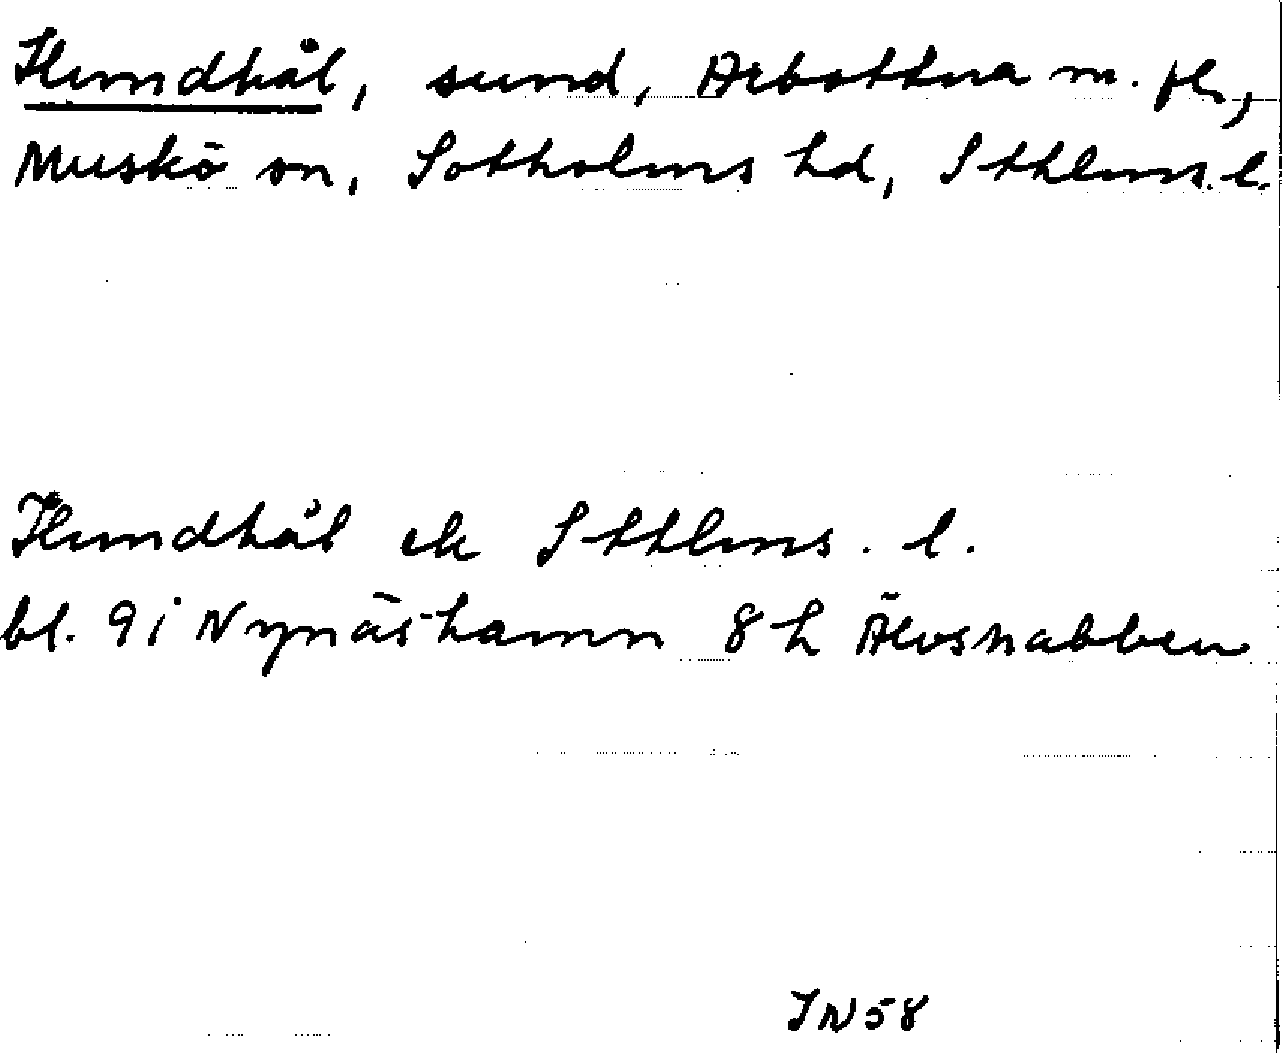 Hundhål, sund, Arbottna m. fl,
Muskö sn, Sotholms hd, Sthlms. l.
Hundhål ek Sthlms. l.
bl. 9 i Nynäshamn 8 h Älvsnabben
IN 58